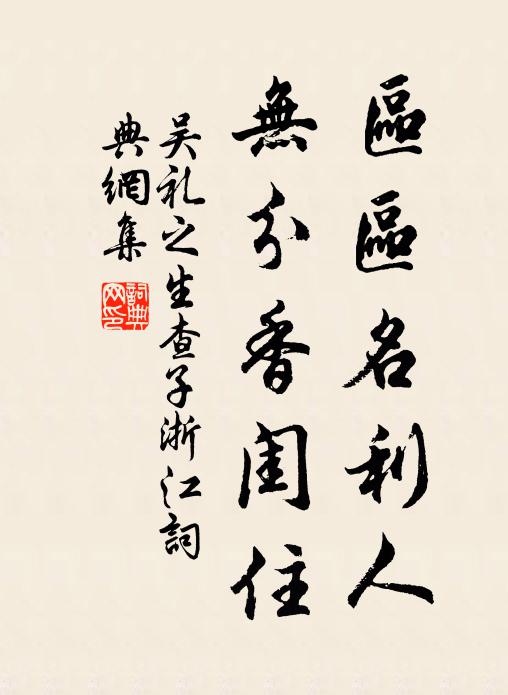 區區名利人
無分香閨住
吴礼之生查子浙江詞
典網集
詞典
网印